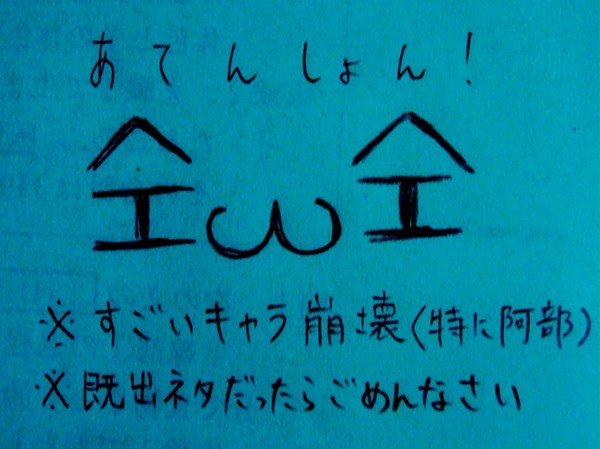 あてんしょん!
※すごいキャラ崩壊(特に阿部)
※既出ネタだったらごめんなさい